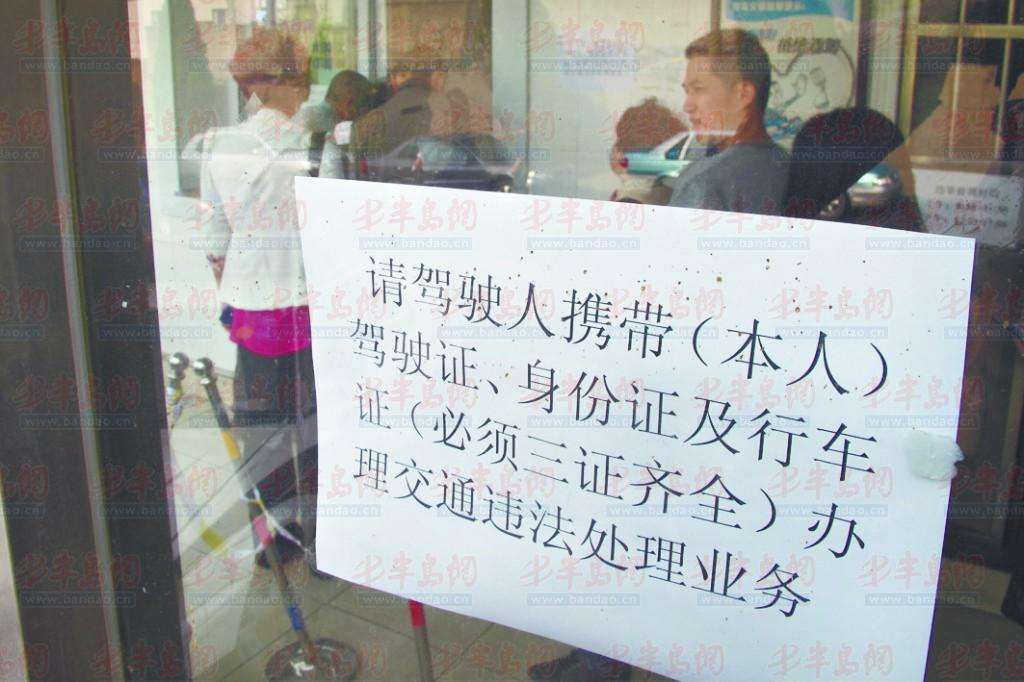 请驾驶人携带（本人）
驾驶证、身份证及行车
证（必须三证齐全）办
理交通违法处理业务
半岛网
www.bandao.cn